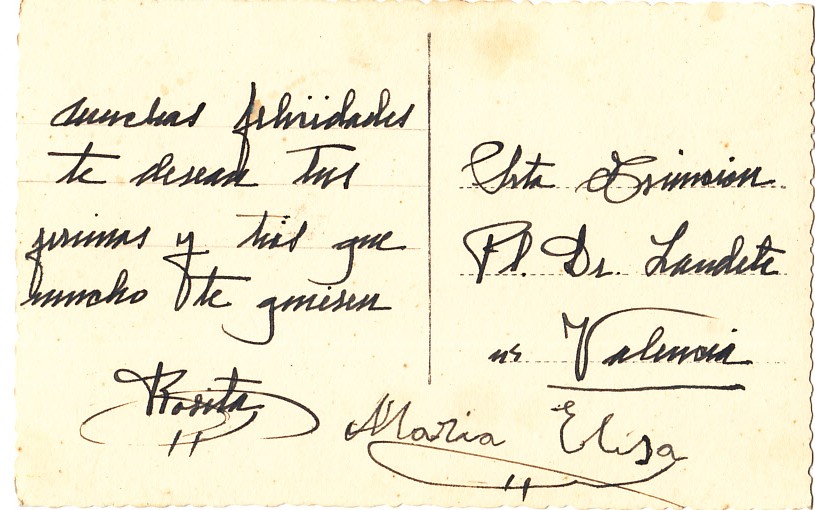 munchas feliridades
te desean tus
primas y tiós que
muncho te quieren
Rosita
Maria Elisa
Srta
Pl. Dr. Landete
Valencia